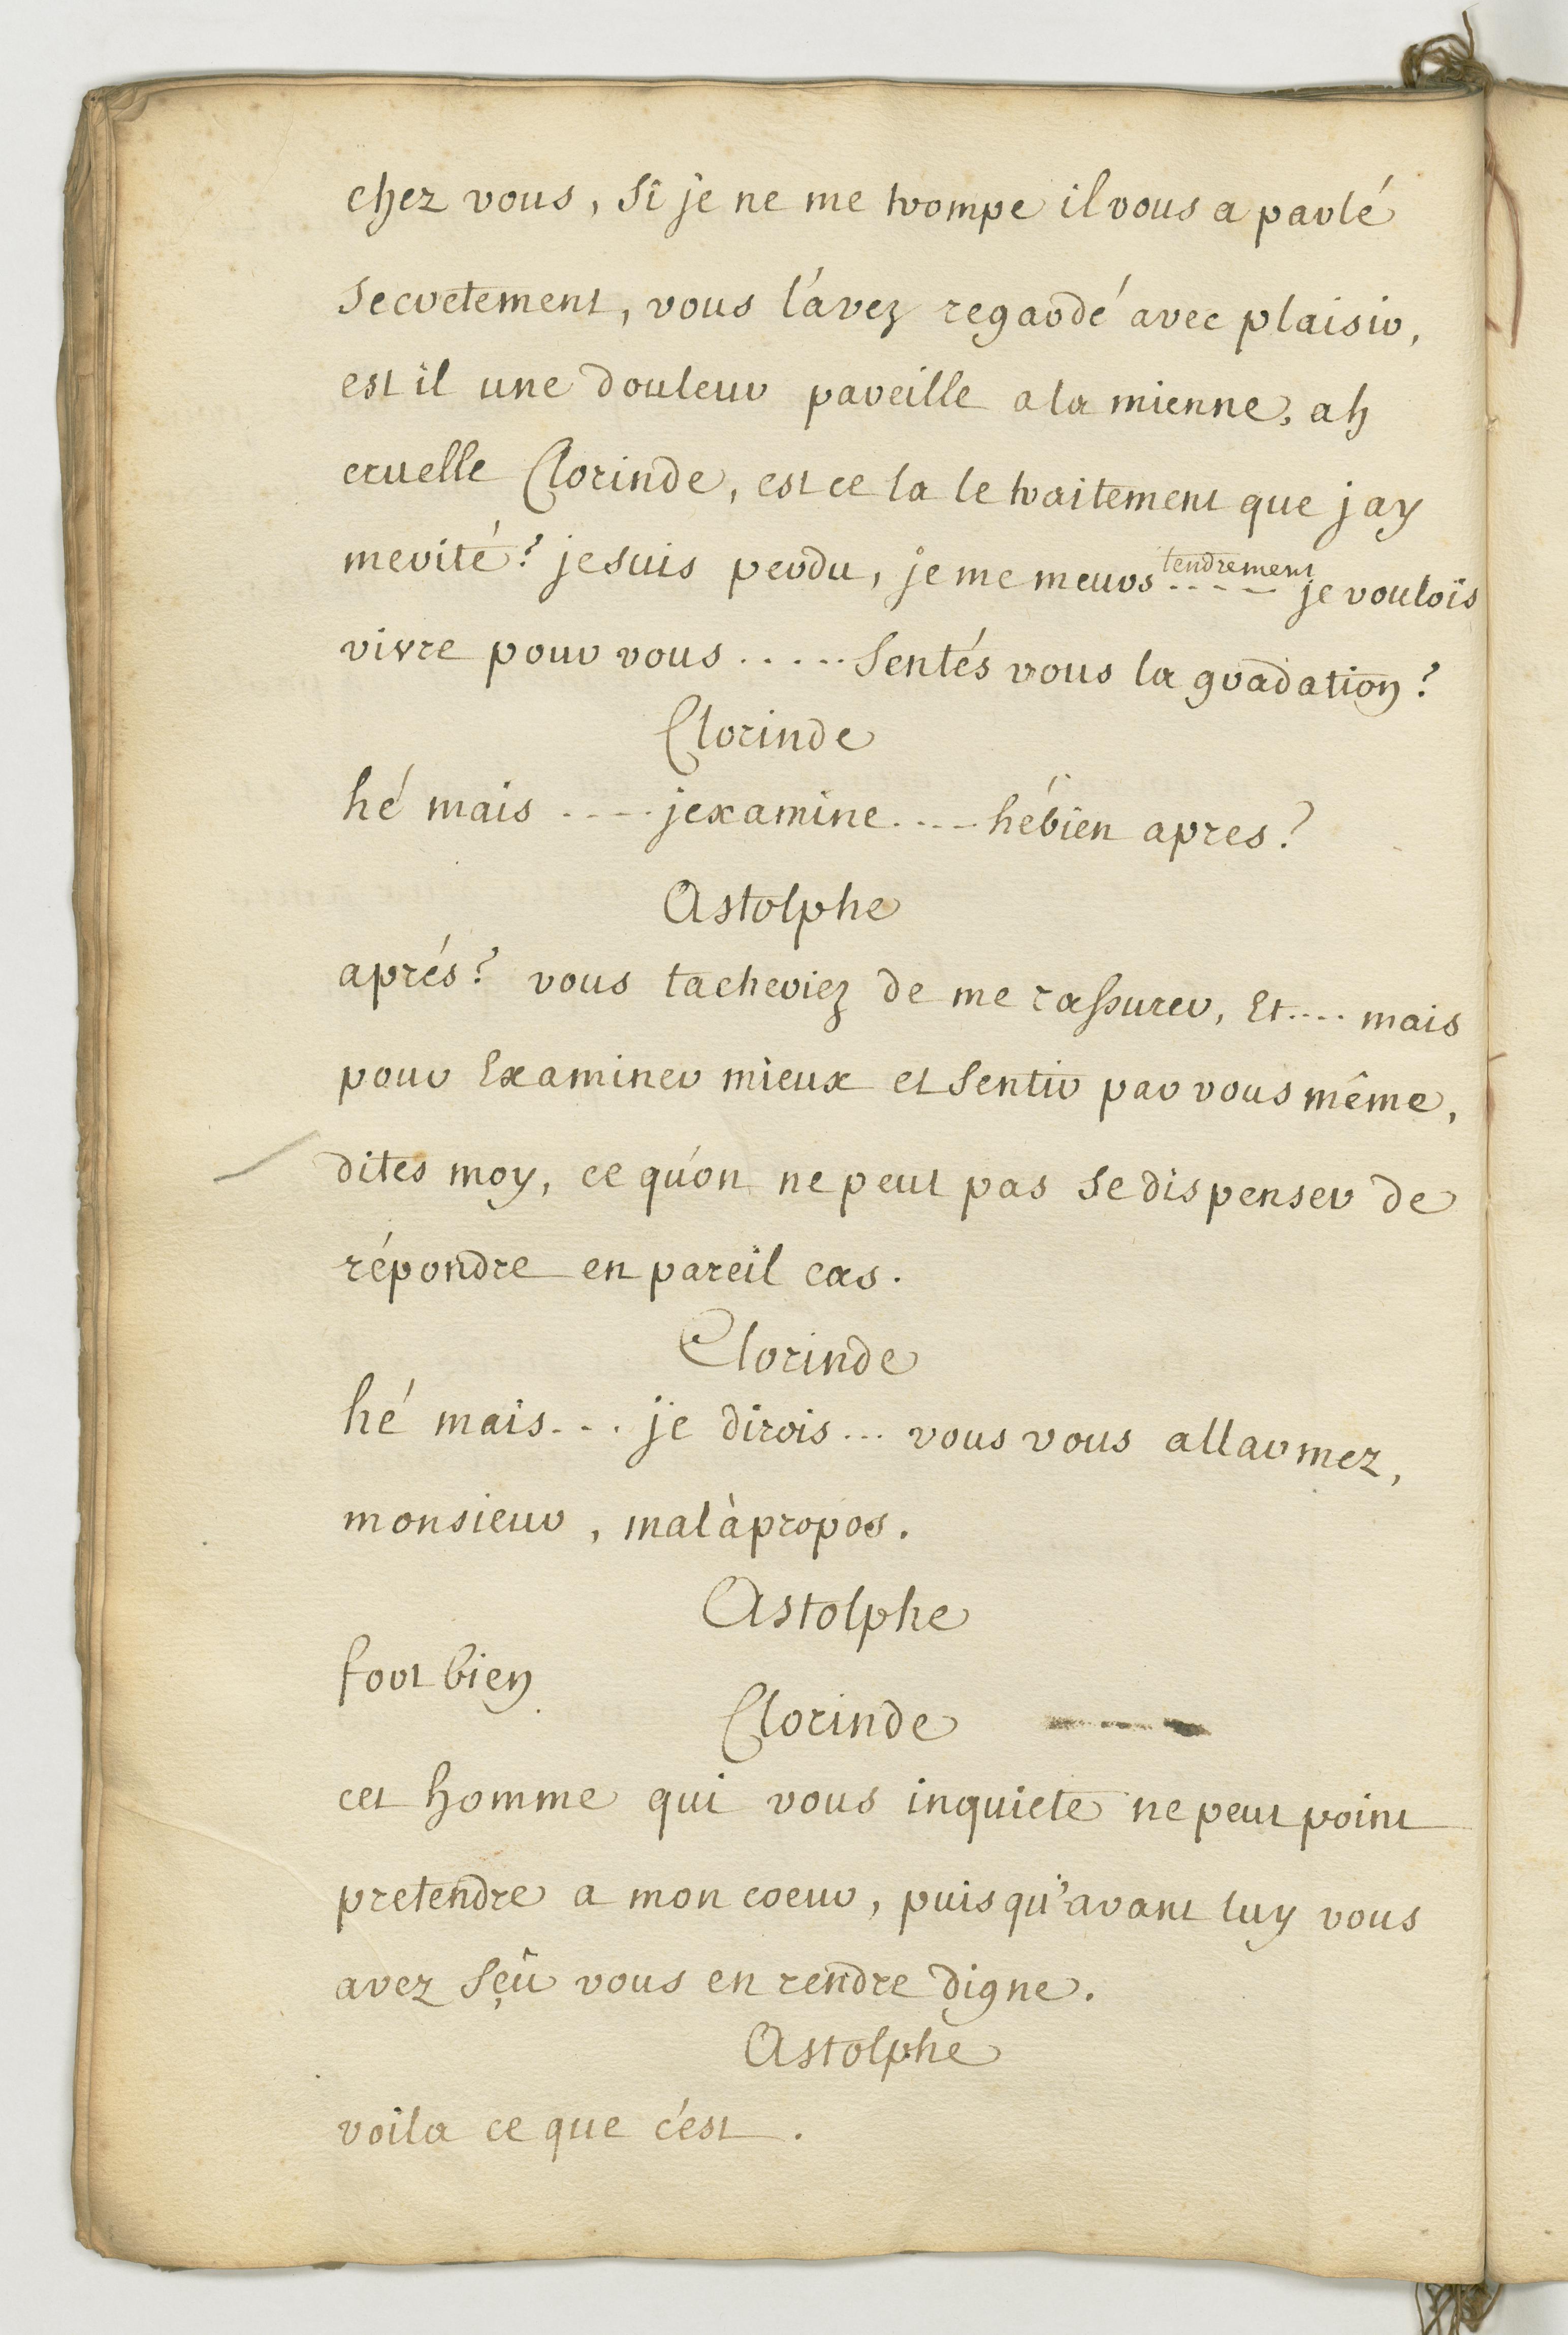 chez vous, si je ne me trompe il vous a parlé
secretement, vous l'avez regardé avec plaisir,
est il une douleur pareille a la mienne, ah
cruelle Clorinde, est ce la le traitement que jay
merité? je suis perdu, je me meurs tendrement ..... je voulois
vivre pour vous ..... sentés vous la gradation?
Clorinde
hé mais ..... jexamine ..... hébien apres?
Astolphe
aprés? vous tacheriez de me rassurer, Et .... mais
pour Examiner mieux et sentir par vous même,
dites moy, ce qu'on ne peut pas se dispenser de
répondre en pareil cas.
Clorinde
hé mais... je dirois... vous vous allarmez,
monsieur, mal à propos.
Astolphe
fort bien
Clorinde
cet homme qui vous inquiete ne peut point
pretendre a mon coeur, puisqu'avant luy vous
avez sçû vous en rendre digne.
Astolphe
voila ce que c'est.